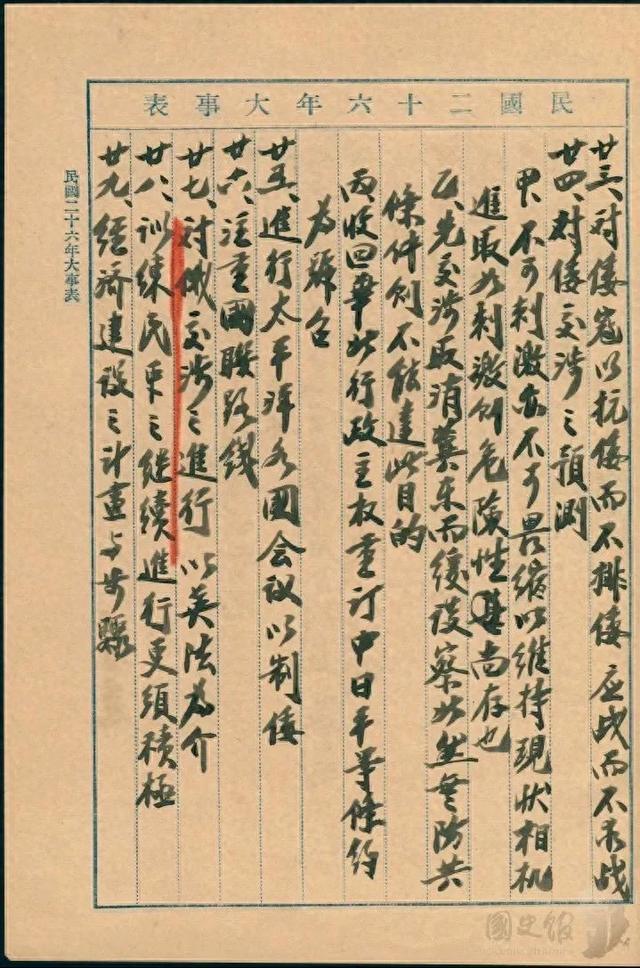 民國二十六年大事表
廿三、對倭寇以抗倭而不排倭應战而不求战
廿四、對倭交涉之預測
甲、不可刺激亦不可畏縮以維持現狀相机
進取如刺激則危險性尚存也
乙、先交涉取消冀東而緩設察北然無防共
條件則不能達此目的
丙、收回華北行政主权重订中日平等條約
為號召
廿五、進行太平洋各國会议以制倭
廿六、注重國聯路线
廿七、對俄交涉之進行以英法為介
廿八、训練民眾之继续進行更须積極
廿九、經濟建設之计畫与步驟
民國二十六年大事表
國史館